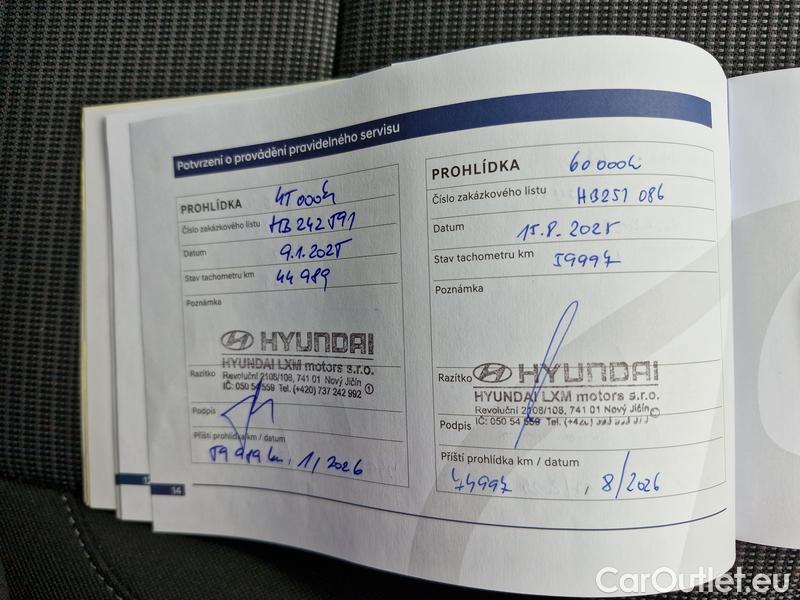 Potvrzení o provádění pravidelného servisu
PROHLÍDKA 45 000h
Číslo zakázkového listu HB 242 591
Datum 9.1.2025
Stav tachometru km 44 989
Poznámka
HYUNDAI
HYUNDAI LXM motors s.r.o.
Razítko Revoluční 2108/108, 741 01 Nový Jičín
IČ: 050 54 559 Tel. (+420) 737 242 992 1
Podpis
Příští prohlídka km / datum
59 989 km, 1/2026
14
PROHLÍDKA 60 000h
Číslo zakázkového listu HB251 086
Datum 15.8.2025
Stav tachometru km 59997
Poznámka
Razítko HYUNDAI
HYUNDAI LXM motors s.r.o.
Revoluční 2108/108, 741 01 Nový Jičín
Podpis IČ: 050 54 559 Tel.
Příští prohlídka km / datum
74997, 8/2026
CarOutlet.eu